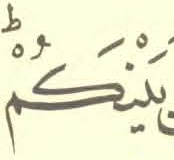 بَيْنَكُمْؕ